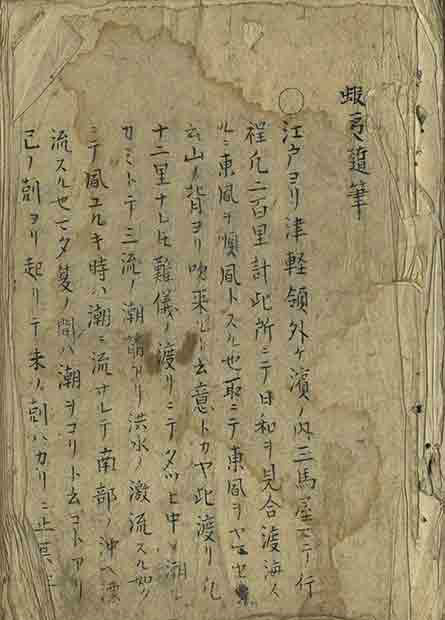 蝦夷随筆
○江戸ヨリ津軽領外ケ濱ノ内三馬屋マテ行
程凡二百里計此所ニテ日和ヲ見合渡海ス
ルニ東風ヲ順風トスル也取ニテ東風ヲヤマセ
云山ノ背ヨリ吹来ルト云意トカヤ此渡リ凡
十二里ナレ𪜈難儀ノ渡リニテタツヒ中ノ潮
カミトテ三流ノ潮アリ洪水ノ激流スル如
ニテ風ユルキ時ハ潮ニ流サレテ南部ノ沖ヘ漂
流スル也セタ夏ノ間ハ潮ヲコリト云コトアリ
巳ノ刻ヨリ起リテ未ノ刻ハカリニ止